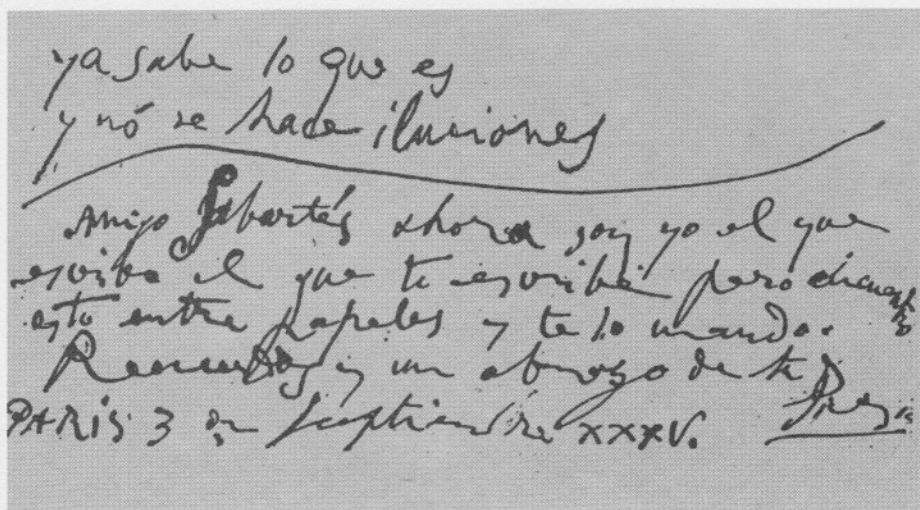 ya sabe lo que es
y nó se hace iluciones
Amigo Sabartés ahora soy yo el que
escribe el que te escribe pero
esto entre papeles y te lo mando.
Recuerdos y un abrazo de tu
PARIS 3 de septiembre XXXV.